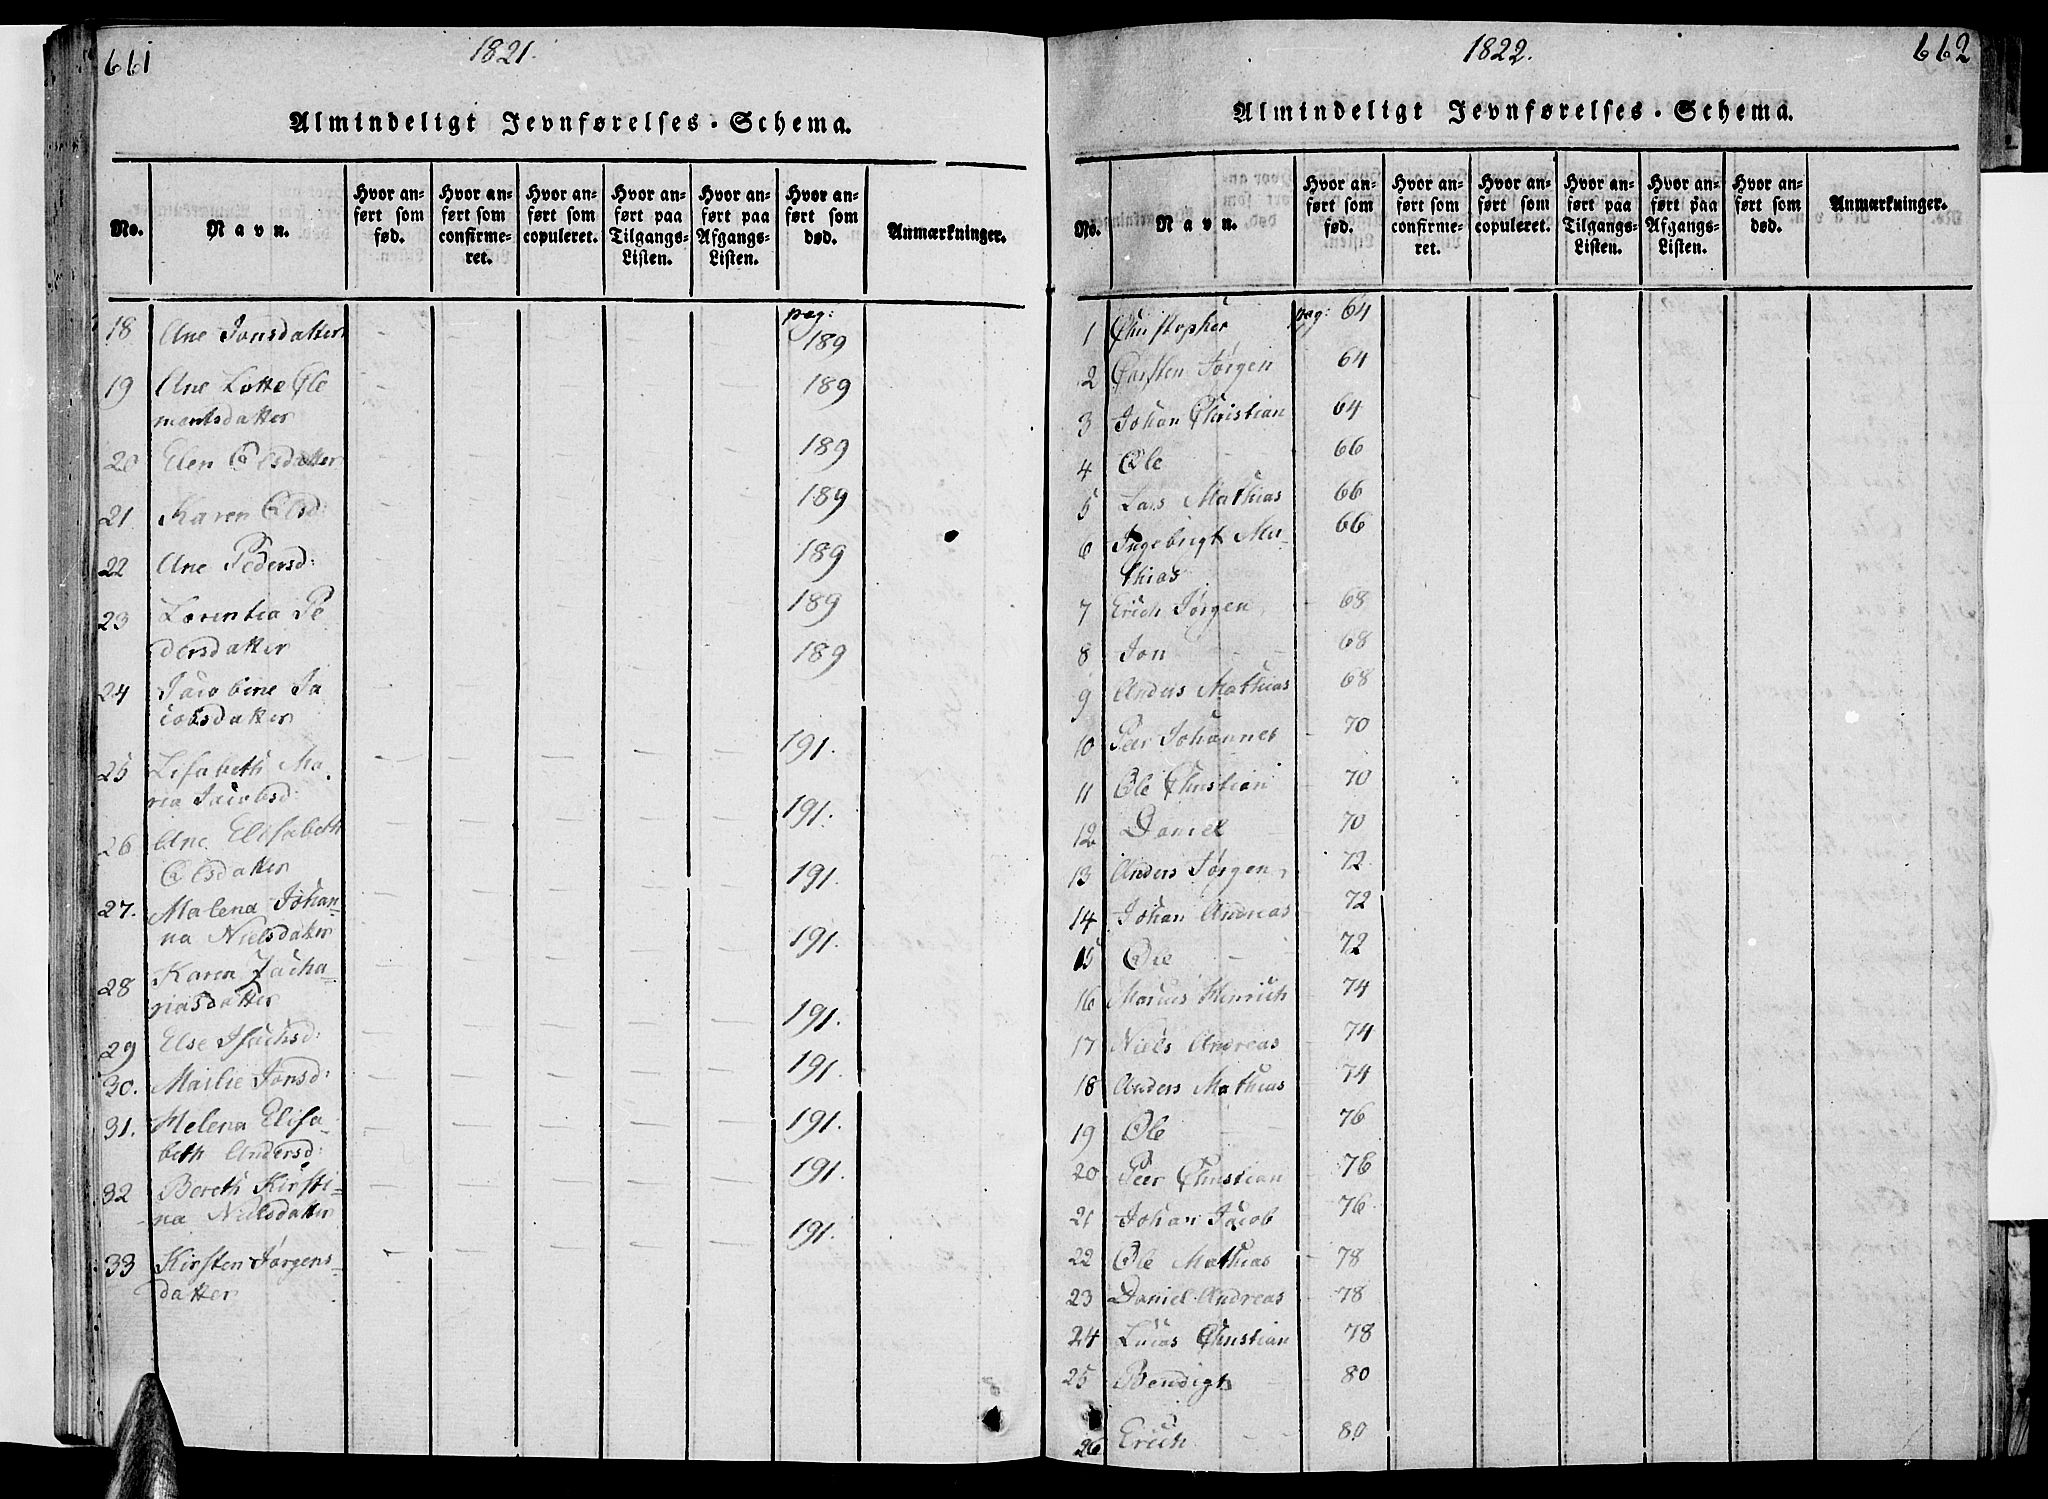 661
1821.
Almindeligt Jevnførelses-Schema.
No.
Navn.
Hvor anført som fød.
Hvor anført som confirmeret.
Hvor anført som copuleret.
Hvor anført paa Tilgangs-Listen.
Hvor anført paa Afgangs-Listen.
Hvor anført som død.
Anmærkninger.
pag:
18 Ane Jonsdatter 189
19 Ane Lotte Cle
mentsdatter 189
20 Elen Olsdatter 189
21 Karen Olsd: 189
22 Ane Pedersd: 189
23 Lorentia Pe
dersdatter 189
24 Jacobine Ja
cobsdatter 189
25 Lisabeth Ma
ria Jacobsd: 191.
26 Ane Elisabeth
Olsdatter 191.
27. Malena Johan-
na Nielsdatter 191.
28 Karen Zacha-
riasdatter 191.
29 Else Isachsd: 191.
30. Marlie Jonsd: 191.
31. Helena Elisa-
beth Andersd: 191.
32 Bereth Kirsti-
na Nielsdatter 191.
33 Kirsten Jørgens-
datter 191.
1822.
662
Almindeligt Jevnførelses-Schema.
No.
Navn.
Hvor anført som fød.
Hvor anført som confirmeret.
Hvor anført som copuleret.
Hvor anført paa Tilgangs-Listen.
Hvor anført paa Afgangs-Listen.
Hvor anført som død.
Anmærkninger.
1 Christopher pag: 64
2 Carsten Jørgen 64
3 Johan Christian 64
4 Ole 66
5 Lars Mathias 66
6 Ingebrigt Ma-
thias 66
7 Erich Jørgen 68
8 Jon 68
9 Anders Mathias 68
10 Peer Johannes 70
11 Ole Christian 70
12 Daniel 70
13 Anders Jørgen 72
14 Johan Andreas 72
15 Ole 72
16 Marcus Hinrich 74
17 Niels Andreas 74
18 Anders Mathias 74
19 Ole 76
20 Peer Christian 76
21 Johan Jacob 76
22 Ole Mathias 78
23 Daniel Andreas 78
24 Lucas Christian 78
25 Bendigt 80
26 Erich 80